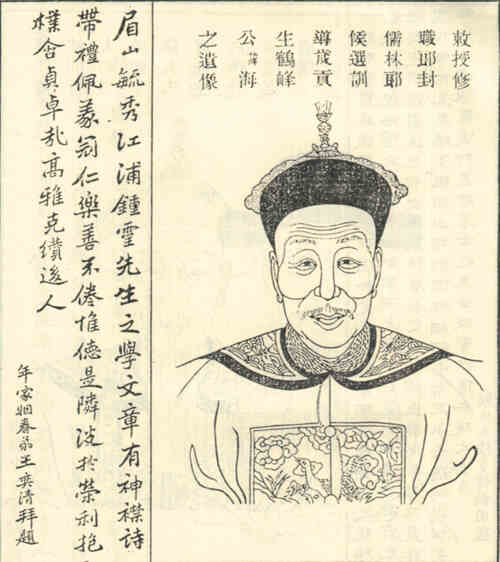 敕授修
職郎封
儒林郎
候選訓
導歲貢
生鶴峰
公諱海
之遺像
眉山毓秀江浦鍾靈先生之學文章有神襟詩
帶禮佩義冠仁樂善不倦惟德是隣淡於榮利抱
樸含貞卓哉高雅克纘人
年家姻眷弟王奕清拜題